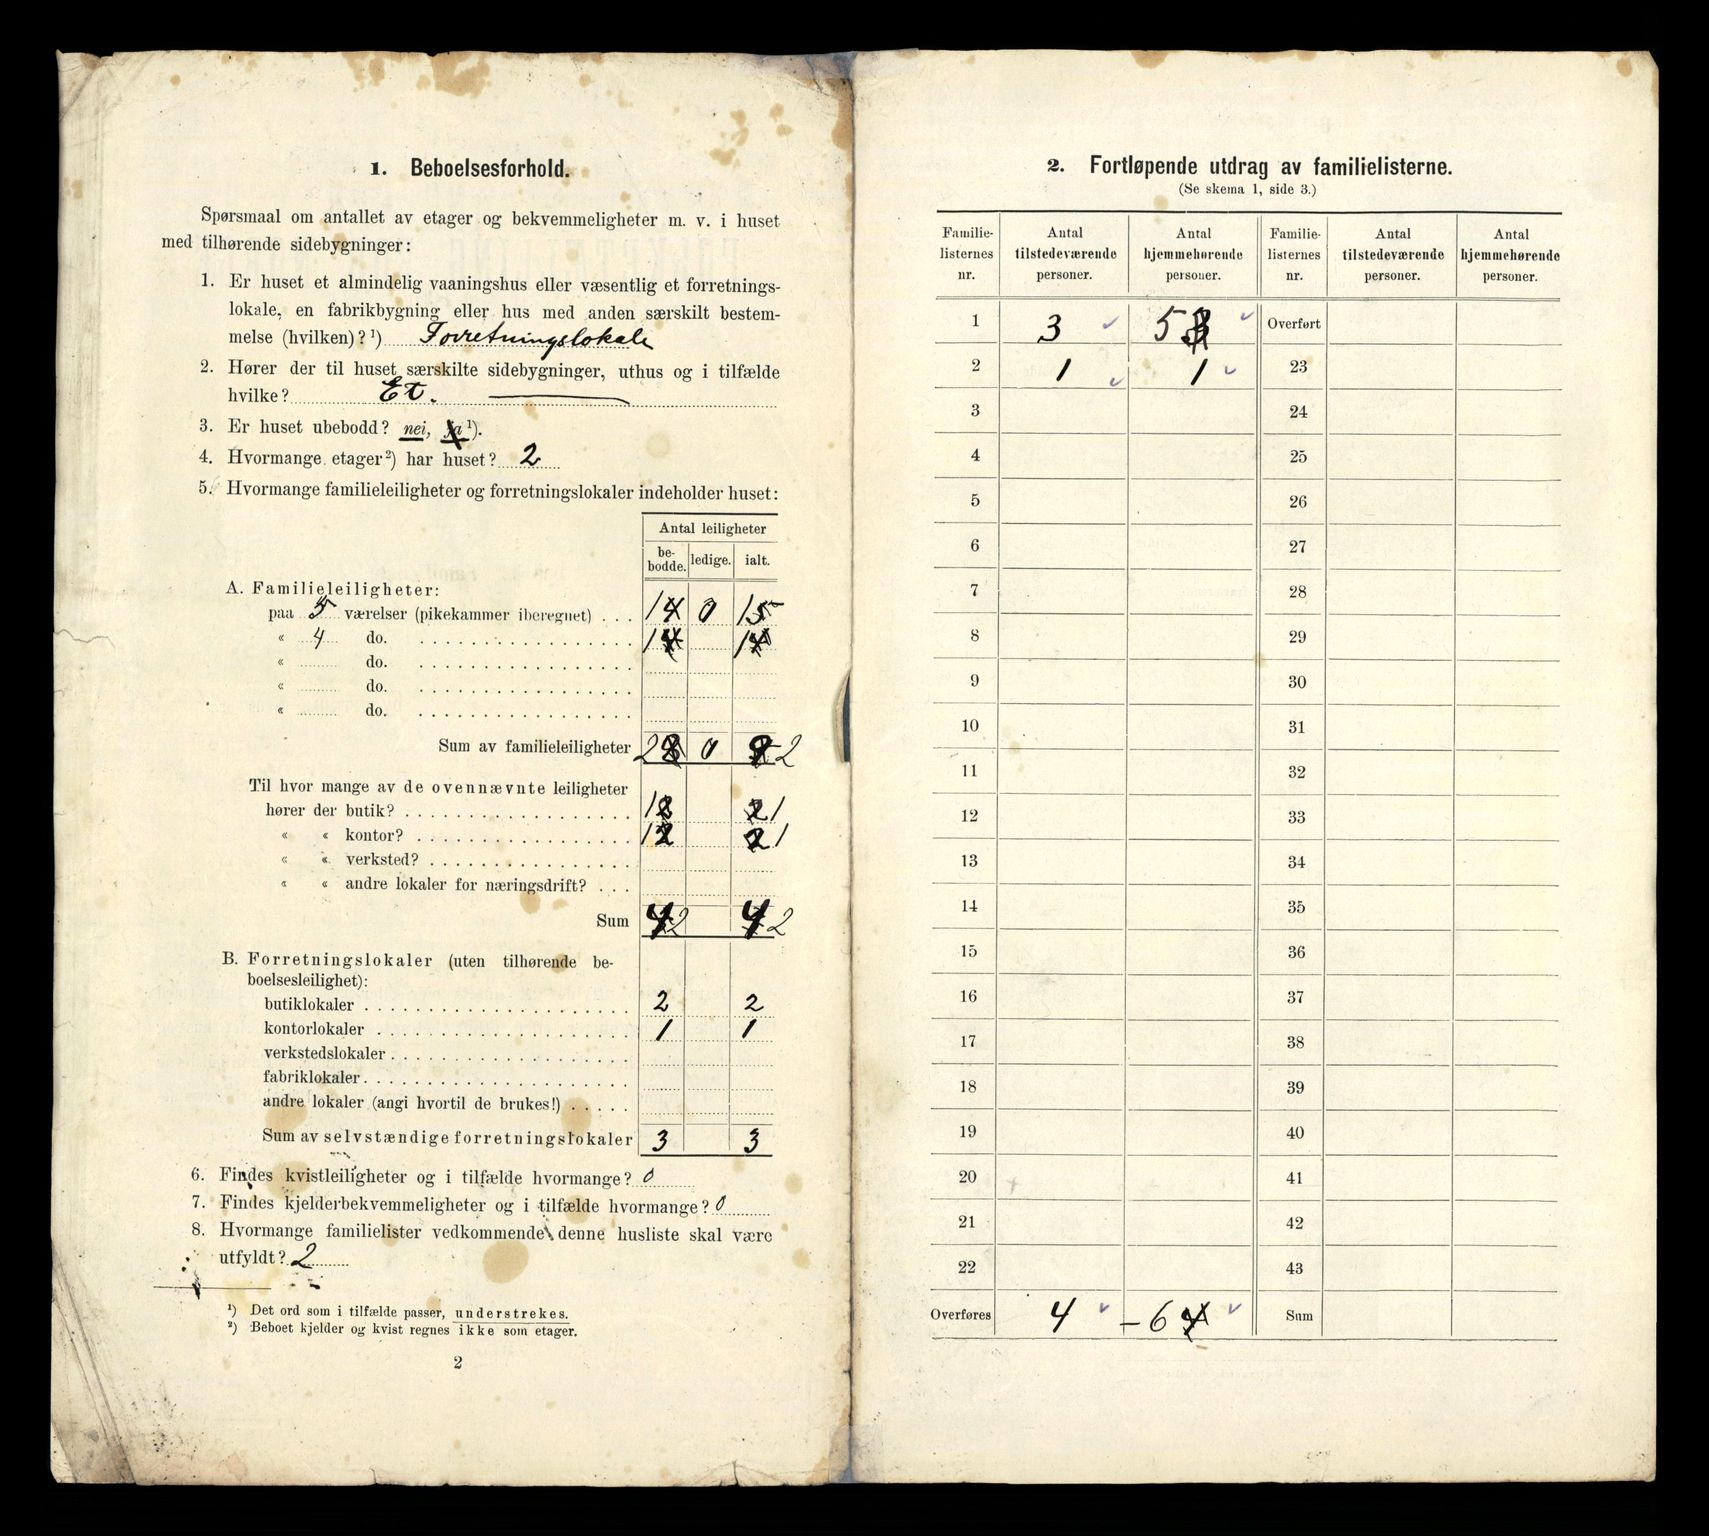 1. Beboelsesforhold.
Spørsmaal om antallet av etager og bekvemmeligheter m. v. i huset
med tilhørende sidebygninger:
1. Er huset et almindelig vaaningshus eller væsentlig et forretnings-
lokale, en fabrikbygning eller hus med anden særskilt bestem-
melse (hvilken)?¹) Forretningslokale
2. Hører der til huset særskilte sidebygninger, uthus og i tilfælde
hvilke? Et.
3. Er huset ubebodd? nei, ja¹).
4. Hvormange etager²) har huset? 2
5. Hvormange familieleiligheter og forretningslokaler indeholder huset:
Antal leiligheter
be-bodde. ledige. ialt.
A. Familieleiligheter:
paa 5 værelser (pikekammer iberegnet) . . . 1 0 1
« 4 do. 1 1
« do.
« do.
« do.
Sum av familieleiligheter 2 0 2
Til hvor mange av de ovennævnte leiligheter
hører der butik? 1 2 2 1
« « kontor? 1 2 2 1
« « verksted?
« « andre lokaler for næringsdrift? . . .
Sum 4 2 4 2
B. Forretningslokaler (uten tilhørende be-
boelsesleilighet):
butiklokaler 2 2
kontorlokaler 1 1
verkstedslokaler
fabriklokaler
andre lokaler (angi hvortil de brukes!)
Sum av selvstændige forretningslokaler 3 3
6. Findes kvistleiligheter og i tilfælde hvormange? 0
7. Findes kjelderbekvemmeligheter og i tilfælde hvormange? 0
8. Hvormange familielister vedkommende denne husliste skal være
utfyldt? 2
¹) Det ord som i tilfælde passer, understrekes.
²) Beboet kjelder og kvist regnes ikke som etager.
2
2. Fortløpende utdrag av familielisterne.
(Se skema 1, side 3.)
Familie-listernes nr. Antal tilstedeværende personer. Antal hjemmehørende personer. Familie-listernes nr. Antal tilstedeværende personer. Antal hjemmehørende personer.
1 3 5 3 Overført
2 1 1 23
3 24
4 25
5 26
6 27
7 28
8 29
9 30
10 31
11 32
12 33
13 34
14 35
15 36
16 37
17 38
18 39
19 40
20 41
21 42
22 43
Overføres 4 – 6 4 Sum